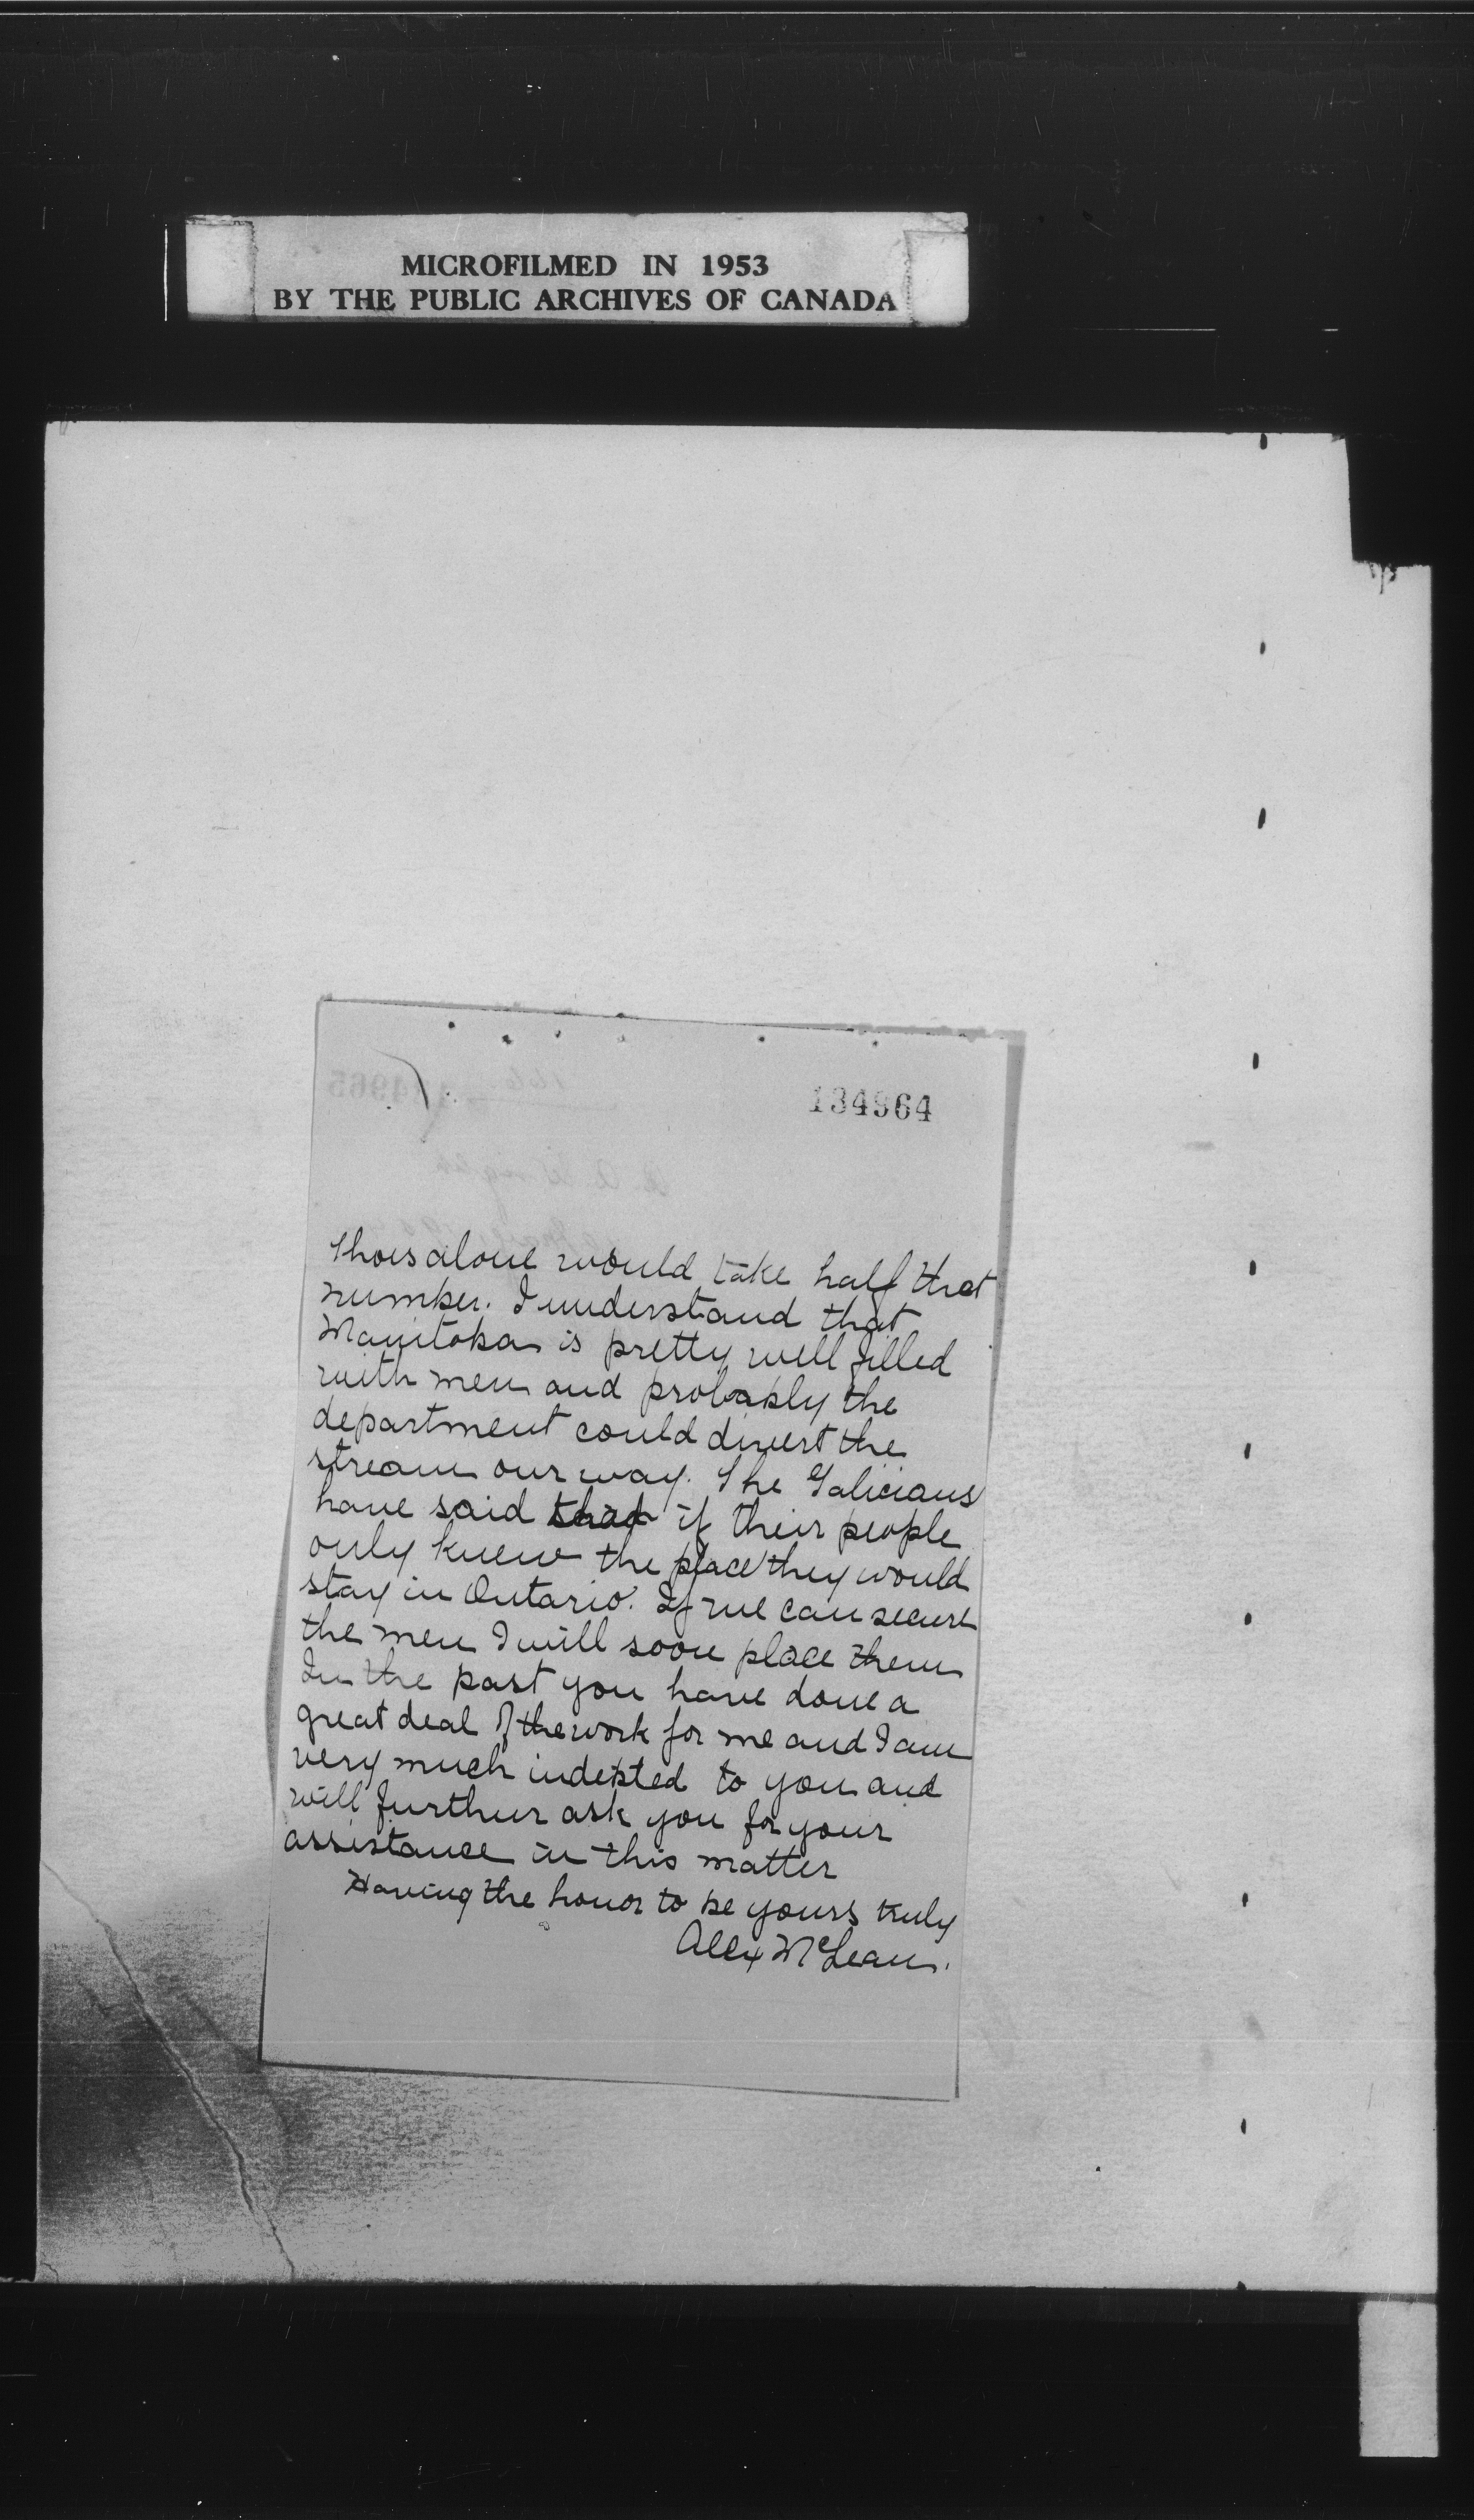 MICROFILMED IN 1953
BY THE PUBLIC ARCHIVES OF CANADA
134964
alone would take half that
number. I understand that
Manitoba is pretty well filled
with men and probably the
department could divert the
stream our way. The Galicians
have said that if their people
only knew the place they would
stay in Ontario. If we can secure
the men I will soon place them
In the past you have done a
great deal of the work for me and I am
very much indebted to you and
will further ask you for your
assistance in this matter
Having the honor to be yours truly
Alex McLean.